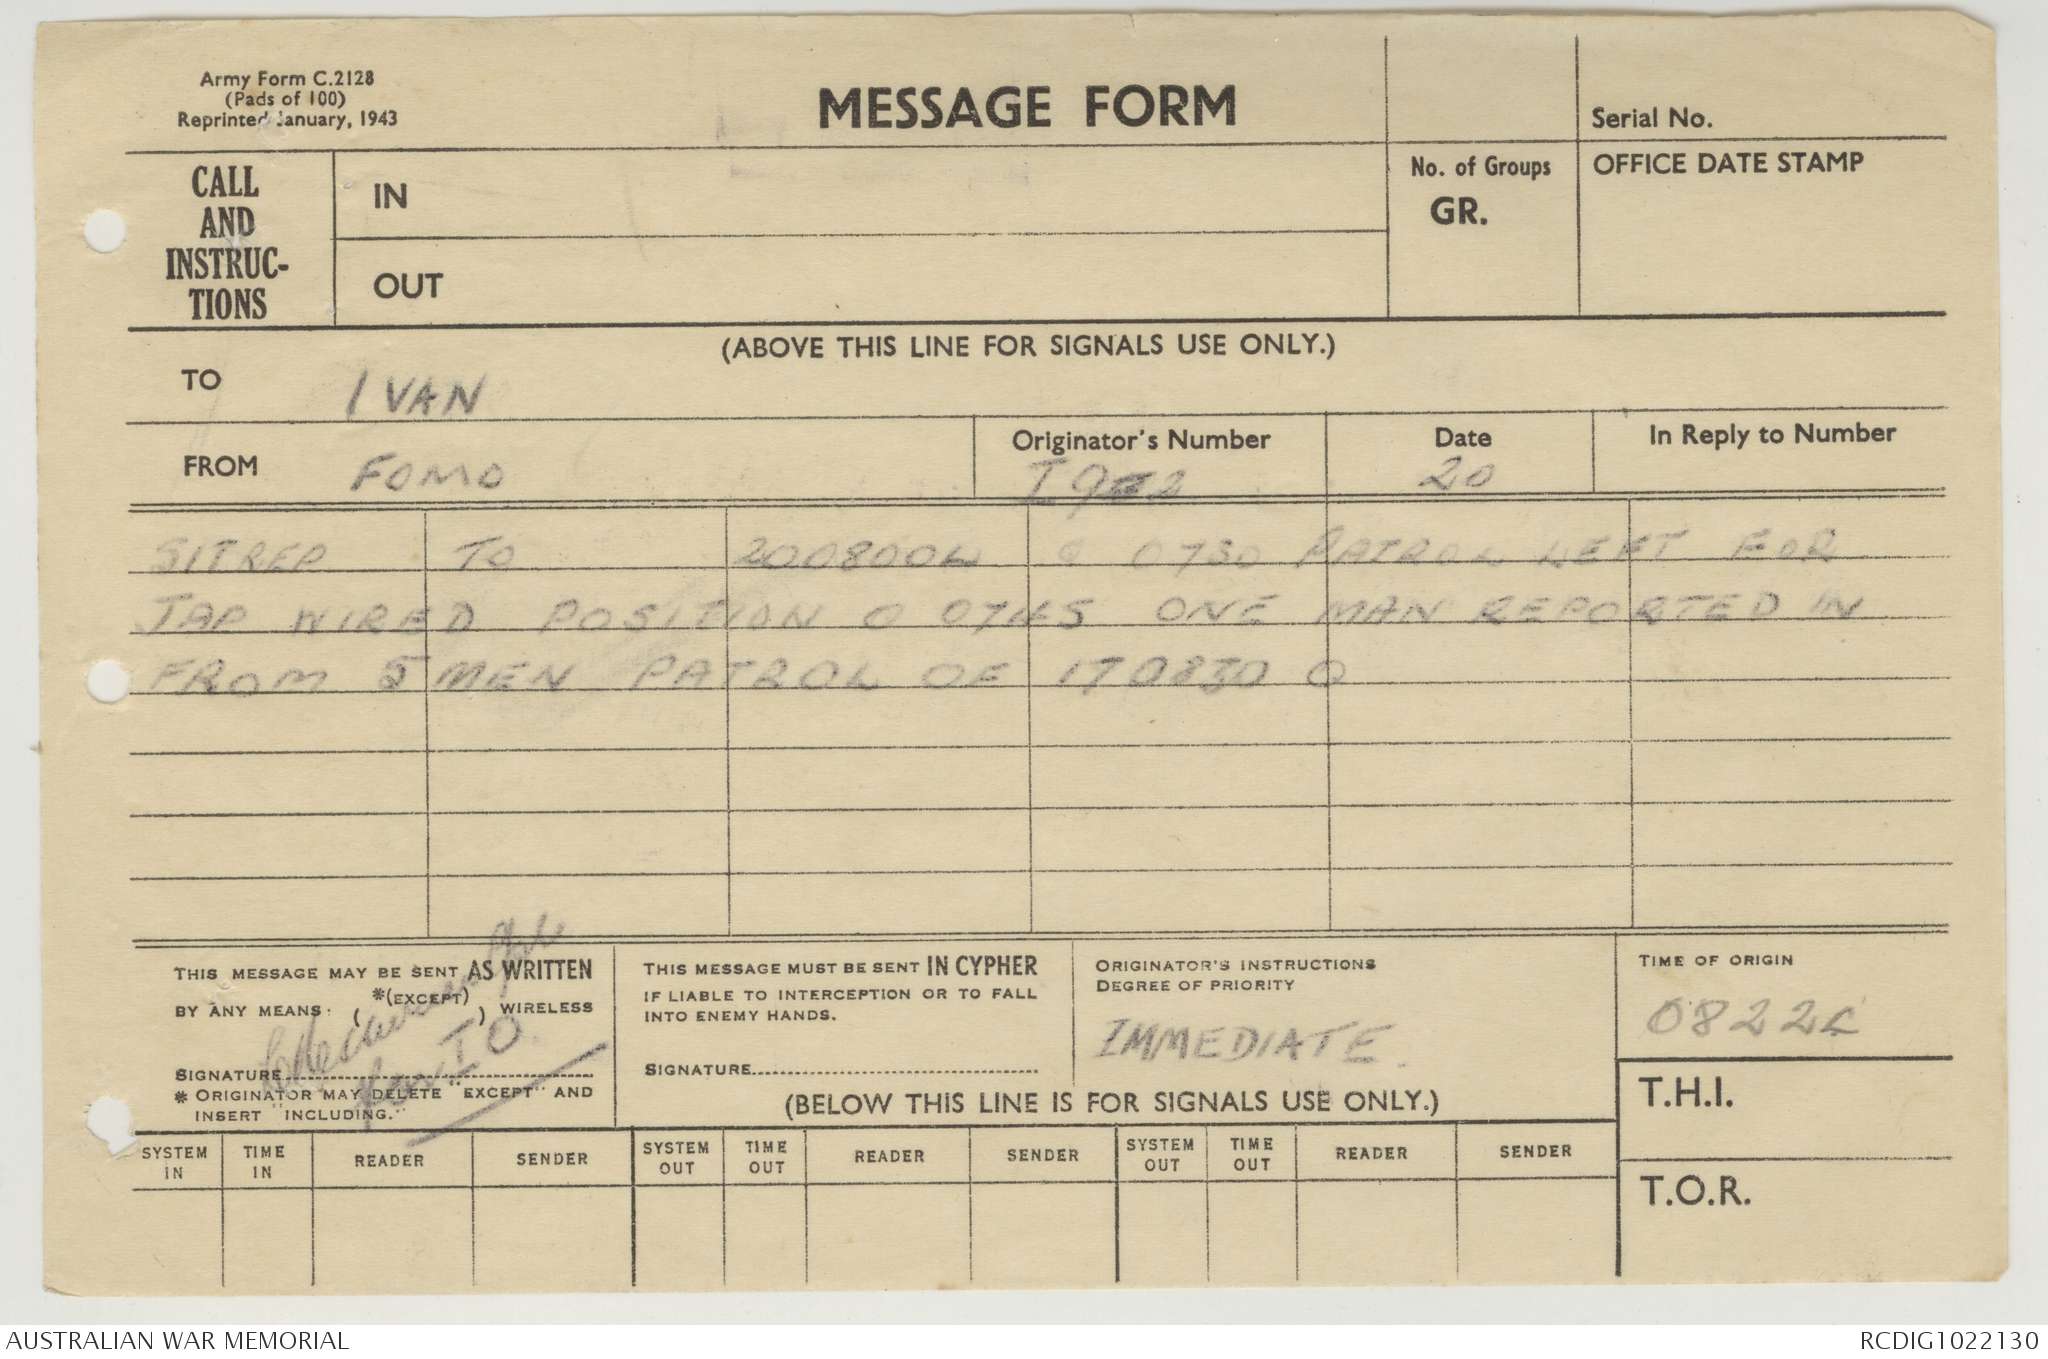 Army Form C.2128
(Pads of 100)
Reprinted January, 1943
MESSAGE FORM
Serial No.
CALL
AND
INSTRUC-
TIONS
IN
OUT
No. of Groups
GR.
OFFICE DATE STAMP
(ABOVE THIS LINE FOR SIGNALS USE ONLY.)
TO IVAN
FROM FOMO
Originator's Number
Date
20
In Reply to Number
SITREP TO 200800L 0 0730 PATROL LEFT FOR
JAP WIRED POSITION 0 0745 ONE MAN REPORTED IN
FROM 5 MEN PATROL OF 170830 0
THIS MESSAGE MAY BE SENT AS WRITTEN
BY ANY MEANS: ( *(EXCEPT) ) WIRELESS
SIGNATURE
IO
* ORIGINATOR MAY DELETE "EXCEPT" AND
INSERT "INCLUDING."
THIS MESSAGE MUST BE SENT IN CYPHER
IF LIABLE TO INTERCEPTION OR TO FALL
INTO ENEMY HANDS.
SIGNATURE
ORIGINATOR'S INSTRUCTIONS
DEGREE OF PRIORITY
IMMEDIATE.
TIME OF ORIGIN
0822L
T.H.I.
T.O.R.
(BELOW THIS LINE IS FOR SIGNALS USE ONLY.)
SYSTEM IN TIME IN READER SENDER SYSTEM OUT TIME OUT READER SENDER SYSTEM OUT TIME OUT READER SENDER
AUSTRALIAN WAR MEMORIAL
RCDIG1022130